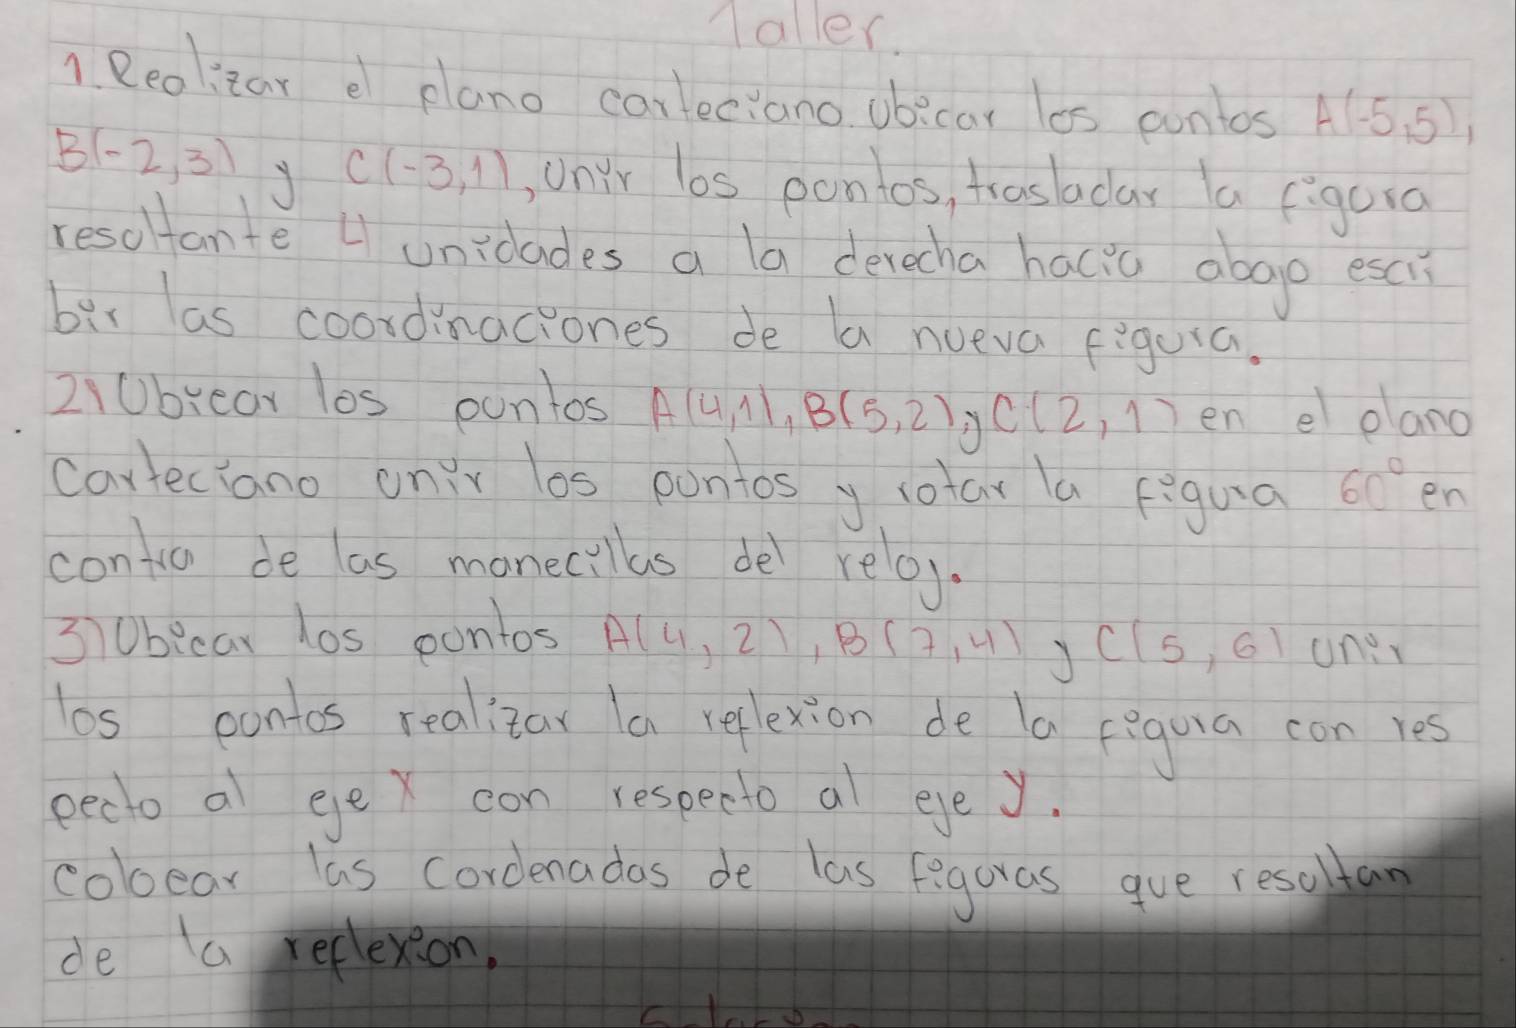 Taller.
1. Realizar el plano carteciano. Ubicar los puntos A(-5,5),
B(-2,3) y C(-3,1), Unir los puntos, trasladar la figura
resultante 4 unidades a la derecha hacia abajo escri
bir las coordinaciones de la nueva figura.
2) Ubicar los puntos A(4,1), B(5,2) y C(2,1) en el plano
Carteciano unir los puntos y rotar la figura 60° en
contra de las manecillas del reloj.
3) Ubicar los puntos A(4,2), B(7,4) y C(5,6) unir
los puntos realizar la reflexion de la figura con res
pecto al eje X con respecto al eje y.
colocar las Cordenadas de las figuras que resultan
de la reflexion.